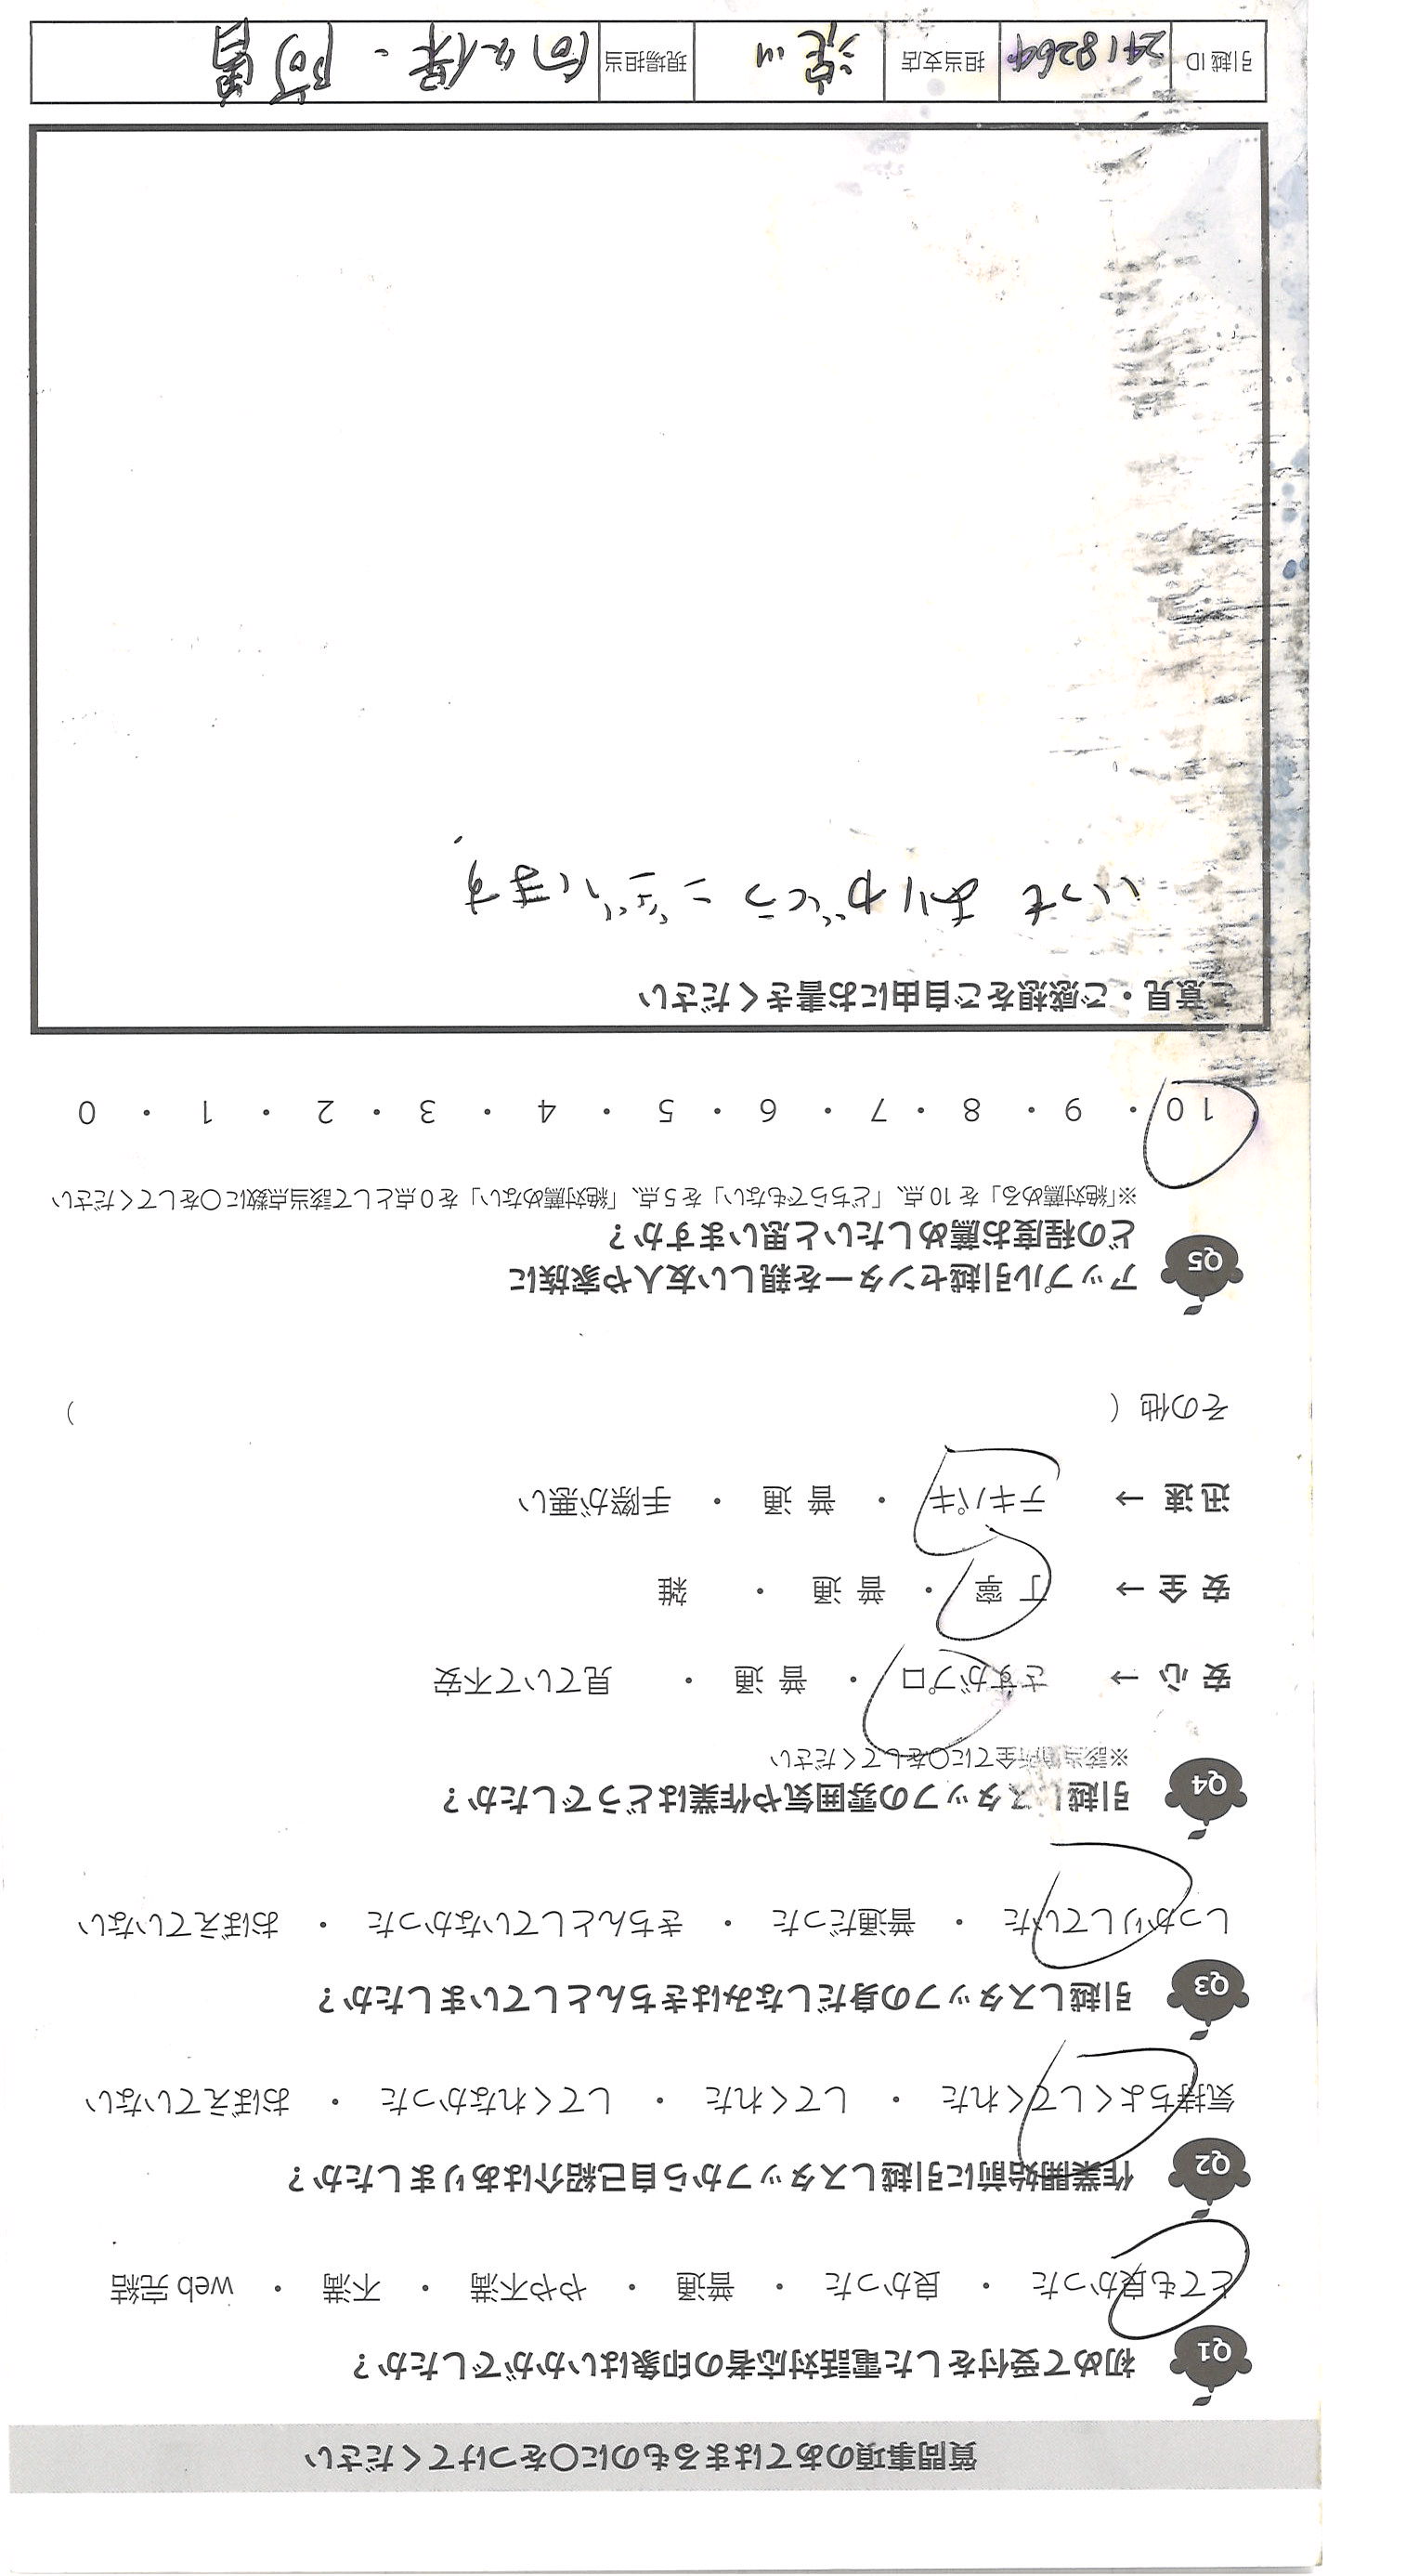 質問事項のあてはまるものに〇をつけてください
Q1 初めて受付をした電話対応者の印象はいかがでしたか？
とても良かった ・ 良かった ・ 普通 ・ やや不満 ・ 不満 ・ web 完結
Q2 作業開始前に引越しスタッフから自己紹介はありましたか？
気持ちよくしてくれた ・ してくれた ・ してくれなかった ・ おぼえていない
Q3 引越しスタッフの身だしなみはきちんとしていましたか？
しっかりしていた ・ 普通だった ・ きちんとしていなかった ・ おぼえていない
Q4 引越しスタッフの雰囲気や作業はどうでしたか？
※該当箇所全てに〇をしてください
安 心 → さすがプロ ・ 普 通 ・ 見ていて不安
安 全 → 丁 寧 ・ 普 通 ・ 雑
迅 速 → テキパキ ・ 普 通 ・ 手際が悪い
その他（ ）
Q5 アップル引越センターを親しい友人や家族に
どの程度お薦めしたいと思いますか？
※「絶対薦める」を 10 点、「どちらでもない」を 5 点、「絶対薦めない」を 0 点として該当点数に〇をしてください
10 ・ 9 ・ 8 ・ 7 ・ 6 ・ 5 ・ 4 ・ 3 ・ 2 ・ 1 ・ 0
ご意見・ご感想をご自由にお書きください
いつも ありがとうございます
引越 ID 2418264 担当支店 淀川 現場担当